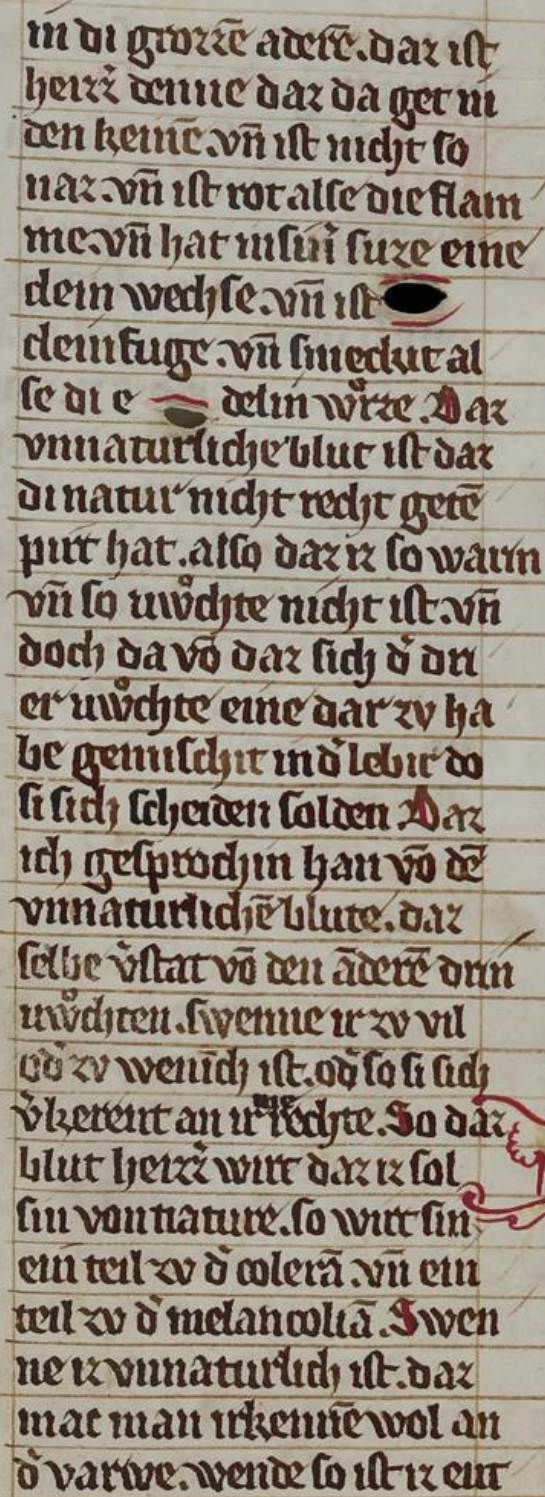 in di grozzē aderē. daz ist
heizz̄ denne daz da get in
den keinē. vn̄ ist nicht so
naz. vn̄ ist rot alse die flam
me. vn̄ hat in sin̄ suze eine
clein wechse. vn̄ ist
cleinfuge. vn̄ smeckit al
se di e delin wůrze. Daz
vnnaturliche blut ist daz
di natur nicht recht getē
pirt hat. also daz iz so warm
vn̄ so uůchte nicht ist. vn̄
doch da vō daz sich d̄ dri
er uůchte eine dar zv ha
be gemischit in d̄ lebir do
si sich scheiden solden. Daz
ich gesprochin han vō dē
vnnaturlichē blute. daz
selbe v̄stat vō den āderē drin
uůchten. swenne ir zv vil
od̄ zv wenich ist. od̄ so si sich
v̄kerent an ir rechte. So daz
blut heizz̄ wirt daz iz sol
sin von nature. so wirt sin
ein teil zv d̄ colerā. vn̄ ein
teil zv d̄ melancoliā. Swen
ne iz vnnaturlich ist. daz
mac man irkennē wol an
d̄ varwe. wende so ist iz eitt